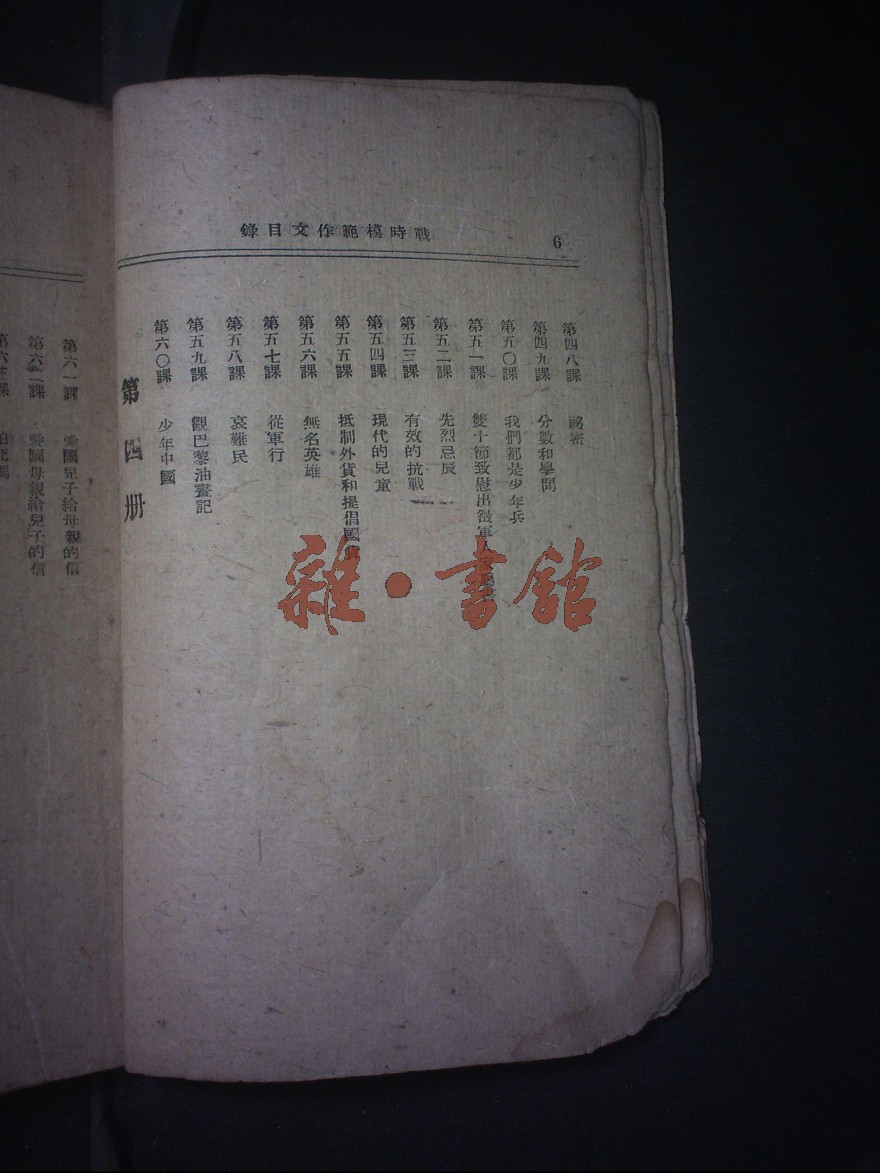 戰時模範作文目錄
6
第四八課 祕密
第四九課 分數和學問
第五〇課 我們都是少年兵
第五一課 雙十節致慰出徵軍人
第五二課 先烈忌辰
第五三課 有效的抗戰
第五四課 現代的兒童
第五五課 抵制外貨和提倡國貨
第五六課 無名英雄
第五七課 從軍行
第五八課 哀難民
第五九課 觀巴黎油畫記
第六〇課 少年中國
第四册
第六一課 愛國兒子給母親的信
第六二課 愛國母親給兒子的信
雜·書館